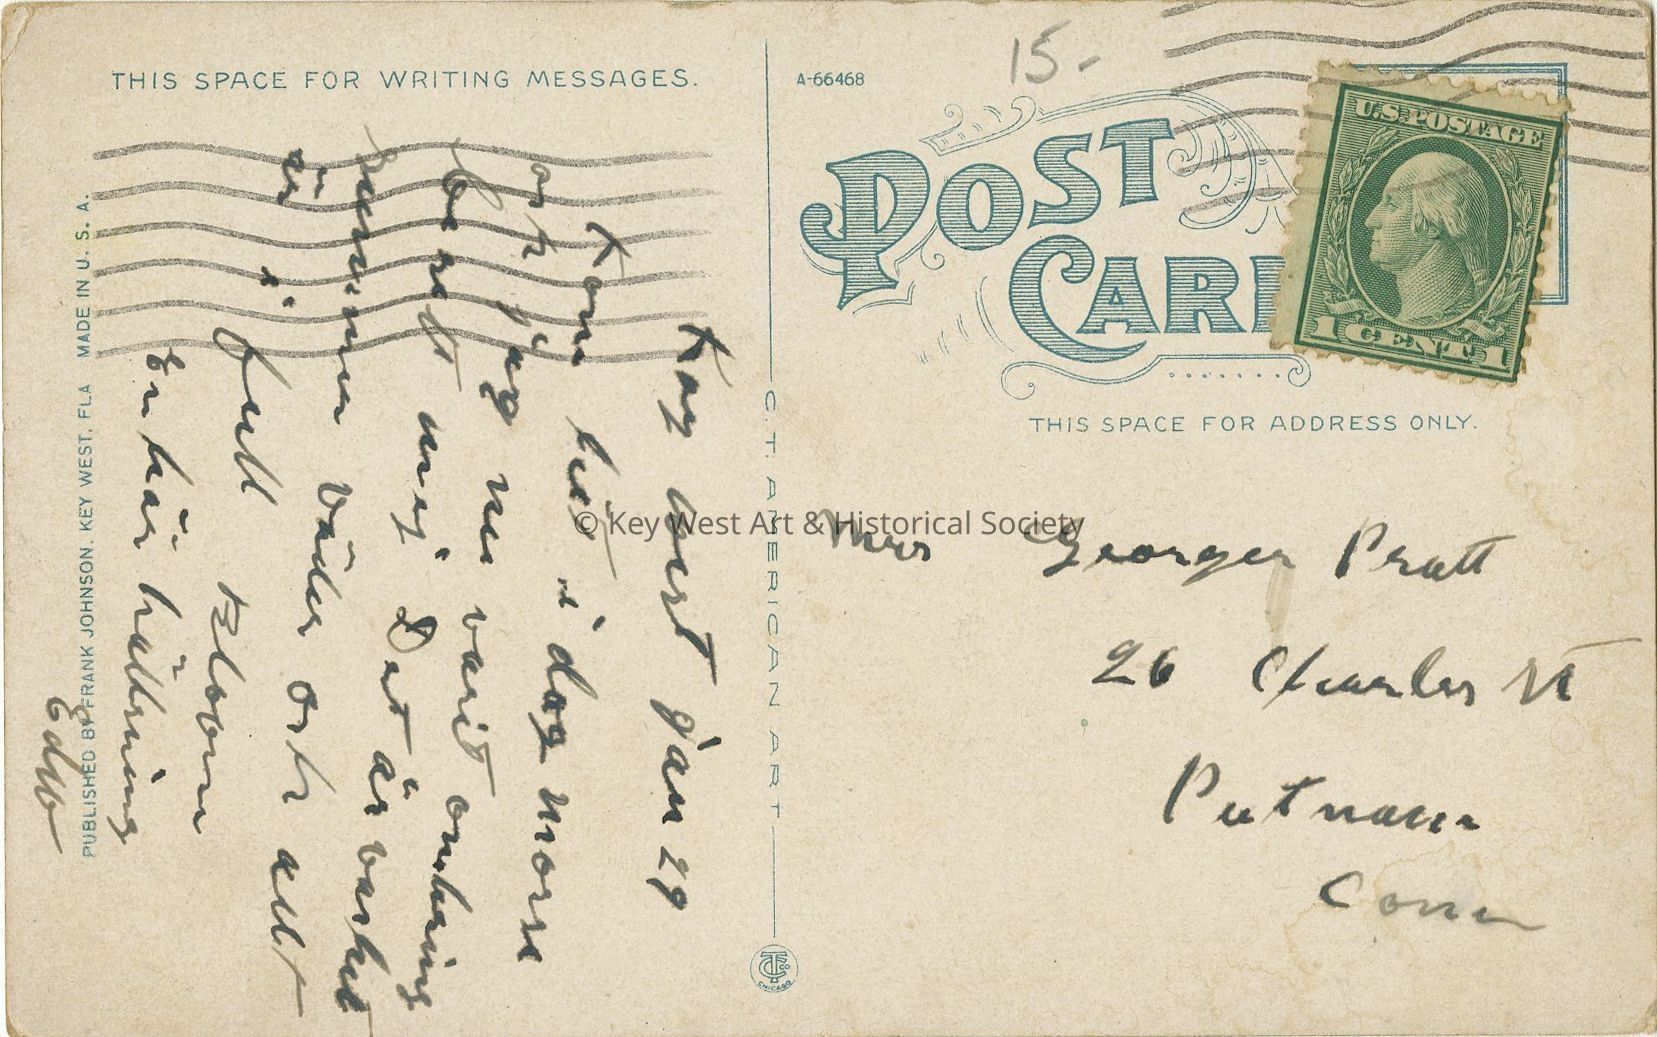 THIS SPACE FOR WRITING MESSAGES.
Kay West Jan 29
Kom hit i dag morse
och jag nu varit omkring
och sett mig Det är vacket
sommer väder och allt
är i full Bloom
En kär hälsning
Edw
PUBLISHED BY FRANK JOHNSON, KEY WEST, FLA MADE IN U. S. A.
C. T. AMERICAN ART
CHICAGO
A-66468
15-
POST CARD
U.S. POSTAGE
1 CENT 1
THIS SPACE FOR ADDRESS ONLY.
Mrs George Pratt
26 Charles St
Putnam
Conn
© Key West Art & Historical Society